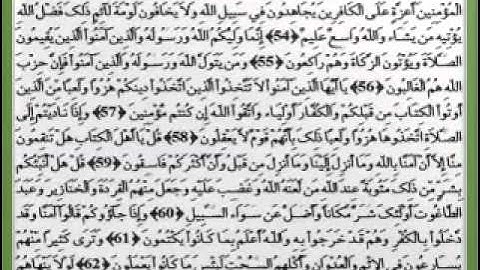 المؤمنين أعزة على الكافرين يجاهدون في سبيل الله ولا يخافون لومة لآئم ذلك فضل الله
يؤتيه من يشاء والله واسع عليم ﴿54﴾ إنما وليكم الله ورسوله والذين آمنوا الذين يقيمون
الصلاة ويؤتون الزكاة وهم راكعون ﴿55﴾ ومن يتول الله ورسوله والذين آمنوا فإن حزب
الله هم الغالبون ﴿56﴾ يا أيها الذين آمنوا لا تتخذوا الذين اتخذوا دينكم هزوا ولعبا من الذين
أوتوا الكتاب من قبلكم والكفار أولياء واتقوا الله إن كنتم مؤمنين ﴿57﴾ وإذا ناديتم إلى
الصلاة اتخذوها هزوا ولعبا ذلك بأنهم قوم لا يعقلون ﴿58﴾ قل يا أهل الكتاب هل تنقمون
منا إلا أن آمنا بالله وما أنزل إلينا وما أنزل من قبل وأن أكثركم فاسقون ﴿59﴾ قل هل أنبئكم
بشر من ذلك مثوبة عند الله من لعنه الله وغضب عليه وجعل منهم القردة والخنازير وعبد
الطاغوت أولئك شر مكانا وأضل عن سواء السبيل ﴿60﴾ وإذا جآؤوكم قالوا آمنا وقد
دخلوا بالكفر وهم قد خرجوا به والله أعلم بما كانوا يكتمون ﴿61﴾ وترى كثيرا منهم
يسارعون في الإثم والعدوان وأكلهم السحت لبئس ما كانوا يعملون ﴿62﴾ لولا ينهاهم